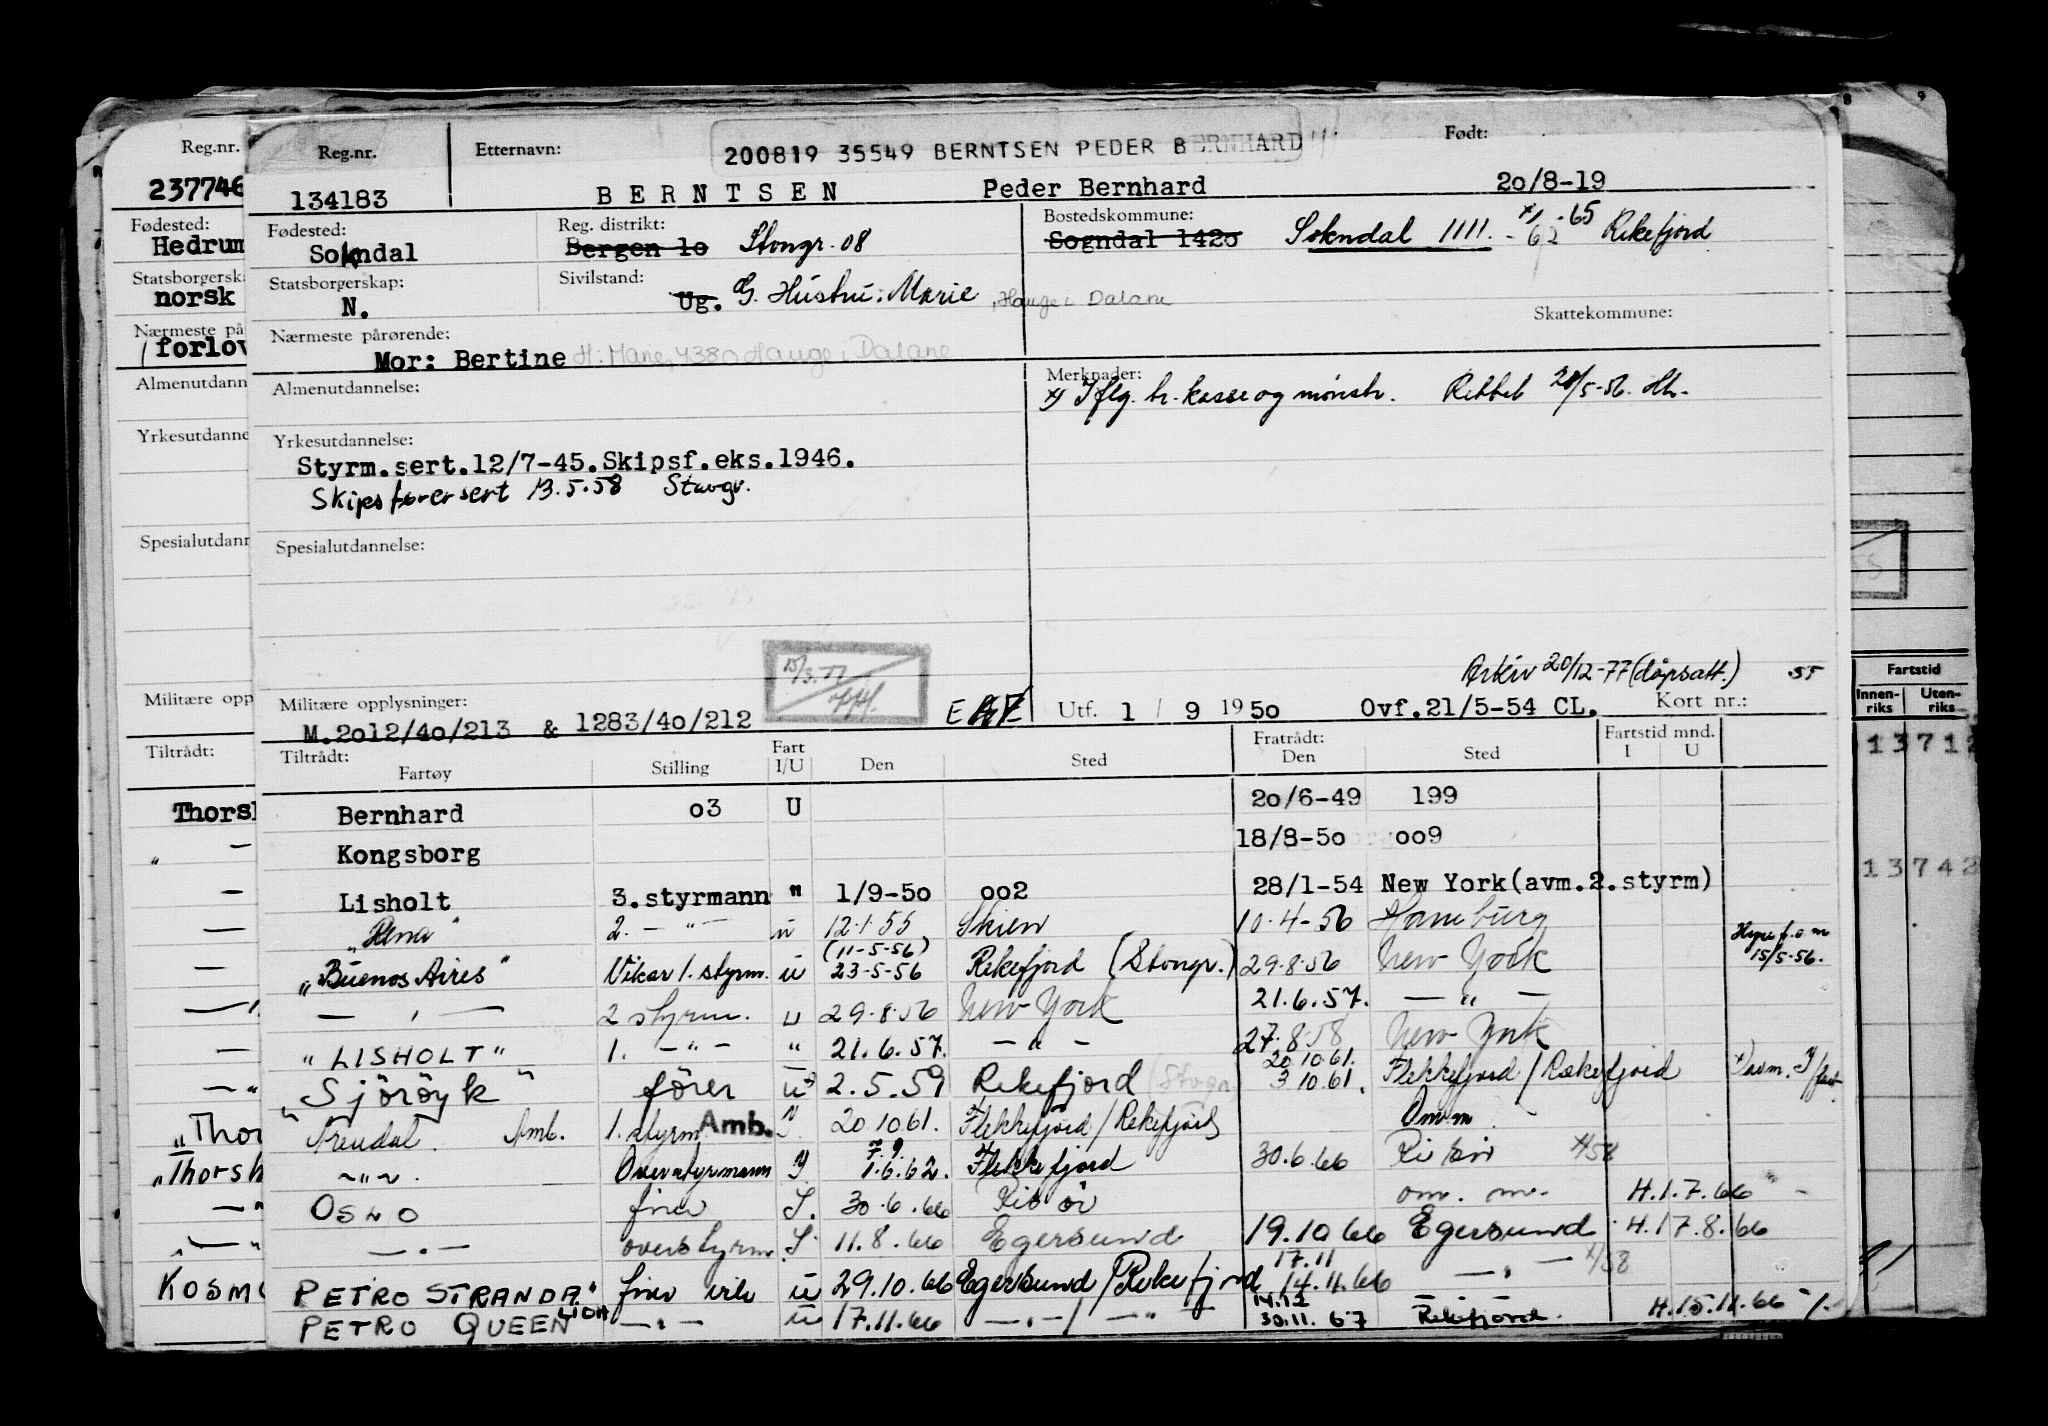 Reg.nr.
237746
Fødested:
Hedrum
Statsborgerska
norsk
Nærmeste på
forlov
Almenutdann
Yrkesutdanne
Spesialutdann
Militære opp
Tiltrådt:
Thorsh
"Thor
"Thorsh
KOSM
Reg.nr. Etternavn: 200819 35549 BERNTSEN PEDER BERNHARD Født:
134183 BERNTSEN Peder Bernhard 20/8-19
Fødested: Reg. distrikt: Bostedskommune:
Sokndal Bergen 10 Stvngr. 08 Sogndal 1420 Sokndal 1111. Rekefjord
Statsborgerskap: Sivilstand:
N. Ug. G. Hustru: Marie, Hauge i Dalane
Skattekommune:
Nærmeste pårørende:
Mor: Bertine H: Marie, 4380 Hauge i Dalane
Almenutdannelse: Merknader:
x) Iflg. hr. kasse og mønstr. Rettet 28/5-56. Hh.
Yrkesutdannelse:
Styrm.sert.12/7-45.Skipsf.eks.1946.
Skipsførersert 13.5.58 Stavgr.
Spesialutdannelse:
15/3.77
Arkiv 20/12-77 (dåpsatt.) 55
Militære opplysninger: Utf. 1 / 9 1950 Ovf.21/5-54 CL. Kort nr.:
M.2012/40/213 & 1283/40/212
Tiltrådt: Fratrådt: Fartstid mnd.
Fartøy Stilling Fart I/U Den Sted Den Sted I U
Bernhard 03 U 20/6-49 199
Kongsborg 18/8-50 009
Lisholt 3.styrmann " 1/9-50 002 28/1-54 New York(avm.2.styrm)
"Rena" 2. — " — u 12.1.55 Skien 10.4-56 Hamburg
"Buenos Aires" Vikar 1. styrm. u (11-5-56) 23-5-56 Rekefjord (Stvngr.) 29.8.56 New York Hyre f.o.m 15/5-56.
— " — 2 styrm. u 29.8.56 New York 21.6.57. — " —
"LISHOLT" 1. — " — " 21.6.57. — " — 27.8.58 New York
"Sjöröyk" förer u 2.5.59 Rekefjord (Stvgr. 20.10.61. 3.10.61. Flekkefjord / Rekefjord
Arendal Amb. 1. styrm. Amb. I. 20.10.61. Flekkefjord / Rekefjord Omm
— " — . Overstyrmann I. 7.9. 1.6.62. Flekkefjord 30.6.66 Risør
OSLO fører I. 30.6.66 Risør om. m. H.1.7.66
— " — overstyrm I 11.8.66 Egersund 19.10.66 Egersund H.17.8.66
"PETRO STRANDA" fører vik u 29.10.66 Egersund / Rekefjord 17.11 14.11.66 — " —
PETRO QUEEN — " — u 17.11.66 — " — / — " — 14.12 30.11.67 Rekefjord. H.15.11.66
Fartstid
Innen-riks Uten-riks
1 3 7 1 2
1 3 7 4 2